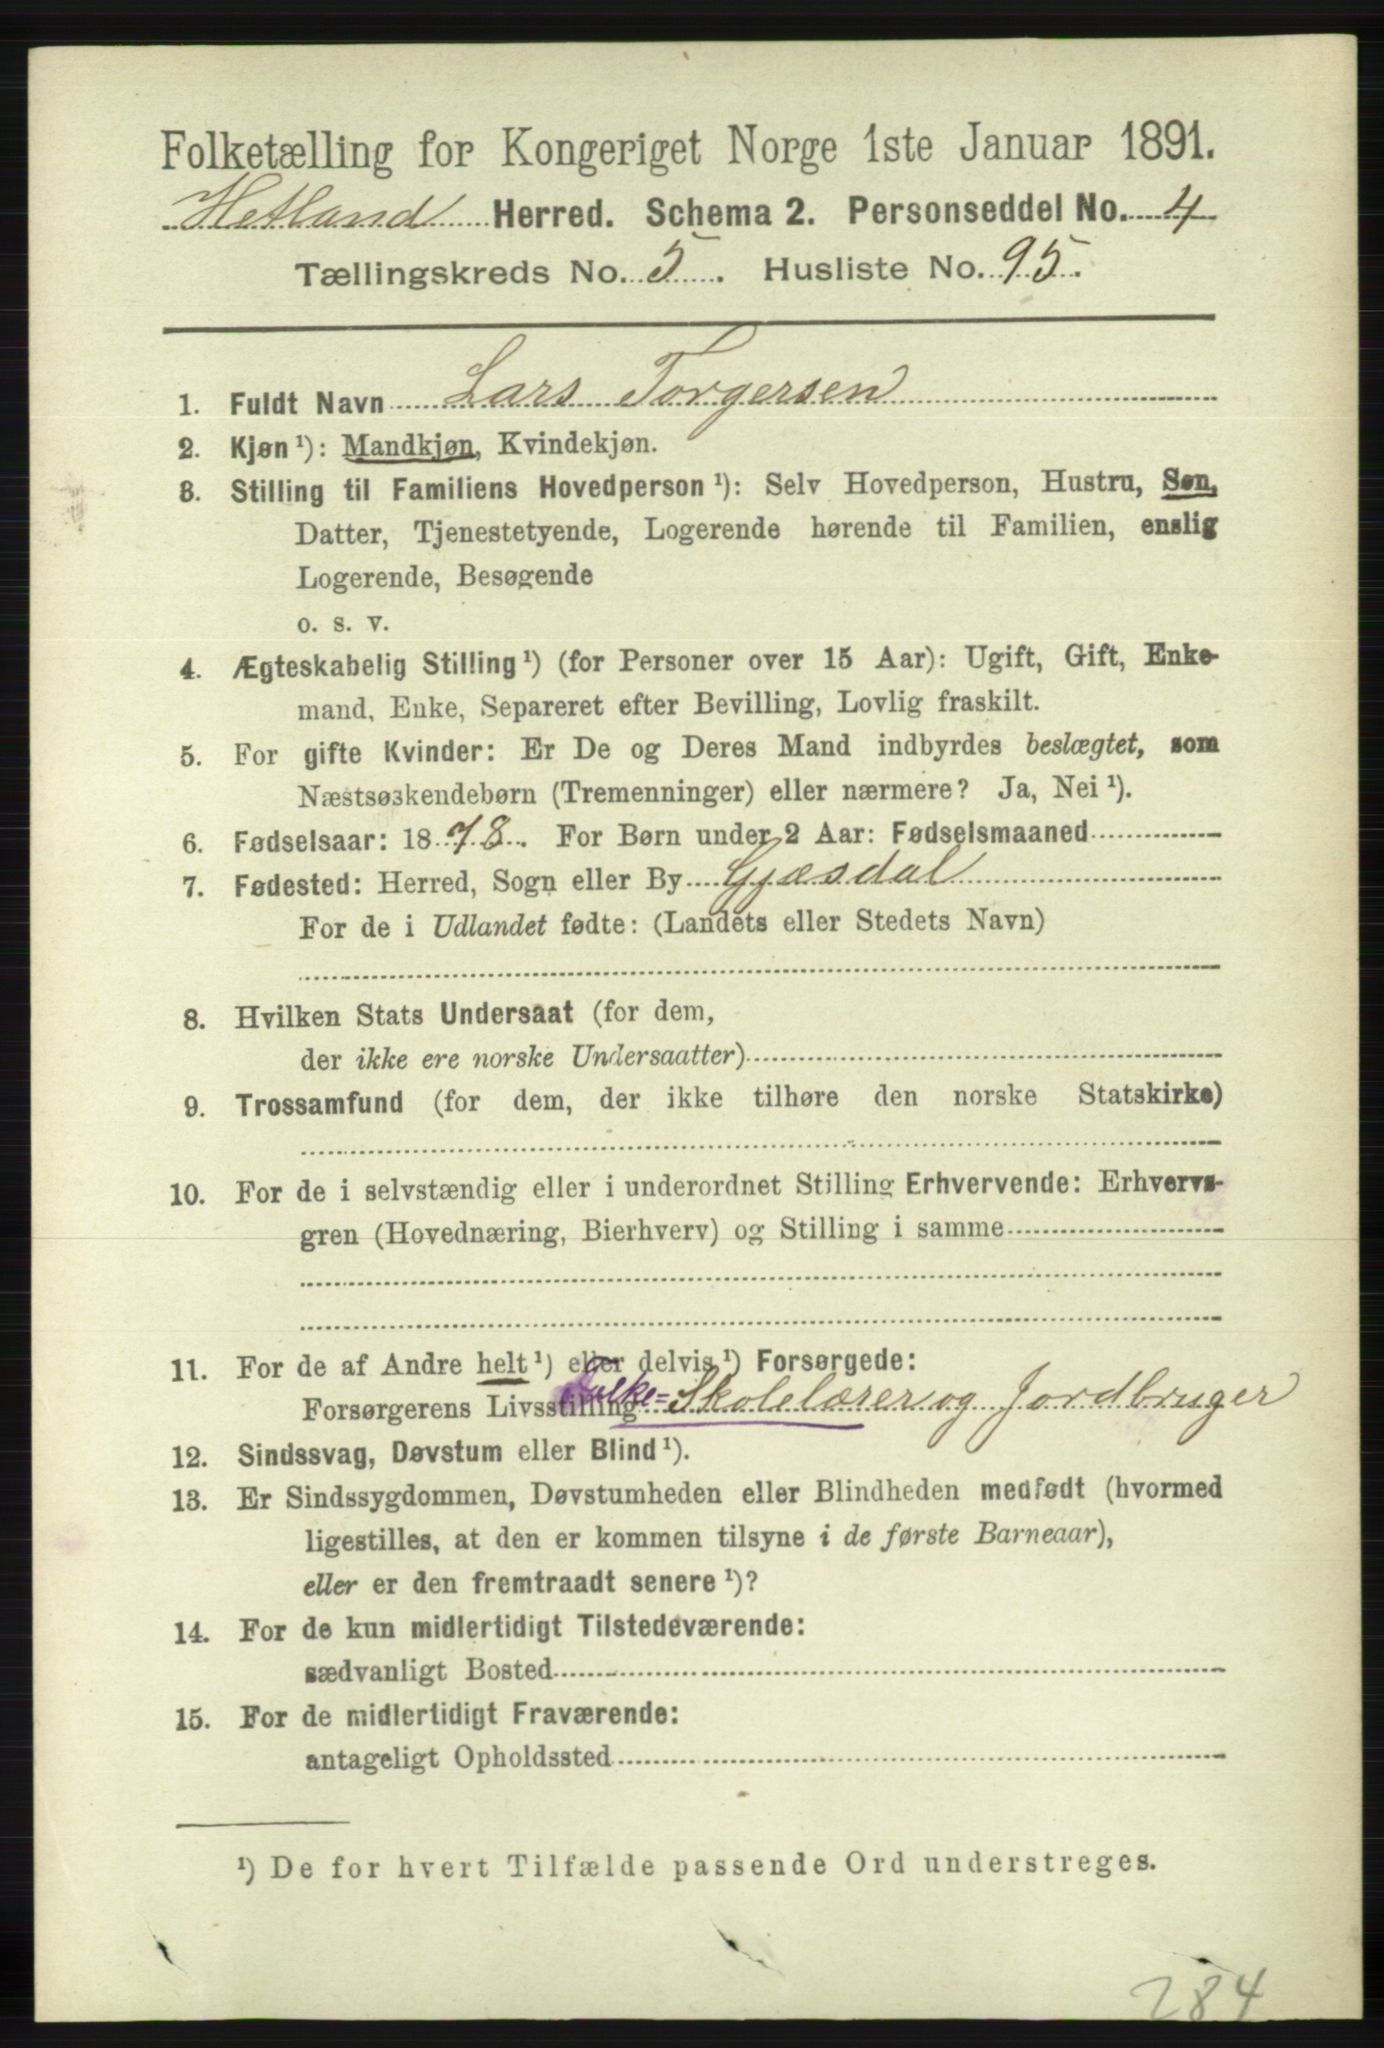 Folketælling for Kongeriget Norge 1ste Januar 1891.
Hetland Herred. Schema 2. Personseddel No. 4
Tællingskreds No. 5. Husliste No. 95.
1. Fuldt Navn Lars Torgersen
2. Kjøn ¹): Mandkjøn, Kvindekjøn.
3. Stilling til Familiens Hovedperson ¹): Selv Hovedperson, Hustru, Søn,
Datter, Tjenestetyende, Logerende hørende til Familien, enslig
Logerende, Besøgende
o. s. v.
4. Ægteskabelig Stilling ¹) (for Personer over 15 Aar): Ugift, Gift, Enke-
mand, Enke, Separeret efter Bevilling, Lovlig fraskilt.
5. For gifte Kvinder: Er De og Deres Mand indbyrdes beslægtet, som
Næstsøskendebørn (Tremenninger) eller nærmere? Ja, Nei ¹).
6. Fødselsaar: 1878. For Børn under 2 Aar: Fødselsmaaned
7. Fødested: Herred, Sogn eller By Gjæsdal
For de i Udlandet fødte: (Landets eller Stedets Navn)
8. Hvilken Stats Undersaat (for dem,
der ikke ere norske Undersaatter)
9. Trossamfund (for dem, der ikke tilhøre den norske Statskirke)
10. For de i selvstændig eller i underordnet Stilling Erhvervende: Erhvervs-
gren (Hovednæring, Bierhverv) og Stilling i samme
11. For de af Andre helt ¹) eller delvis ¹) Forsørgede:
Forsørgerens Livsstilling Folke= Skolelærer og Jordbruger
12. Sindssvag, Døvstum eller Blind ¹).
13. Er Sindssygdommen, Døvstumheden eller Blindheden medfødt (hvormed
ligestilles, at den er kommen tilsyne i de første Barneaar),
eller er den fremtraadt senere ¹)?
14. For de kun midlertidigt Tilstedeværende:
sædvanligt Bosted
15. For de midlertidigt Fraværende:
antageligt Opholdssted
¹) De for hvert Tilfælde passende Ord understreges.
284